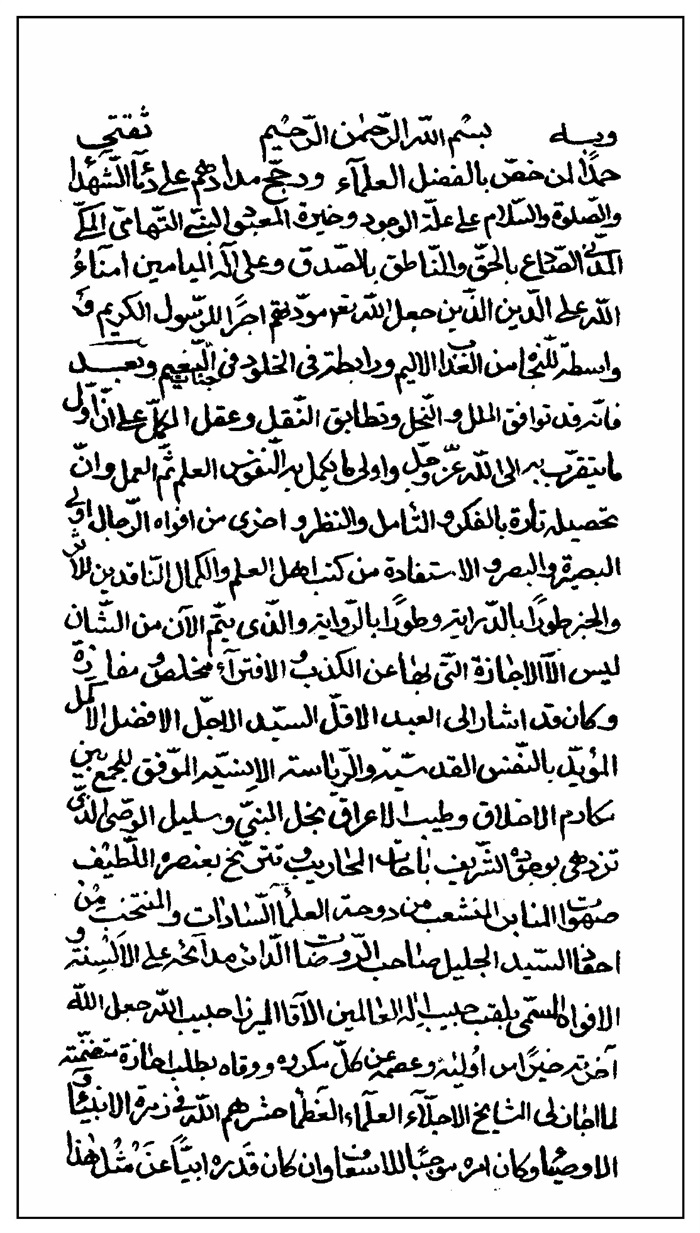 وبه بسم الله الرحمن الرحيم ثقتي
حمدًا لمن خصّ بالفضل العلمآء ورجّح مدادهم على دمآء الشّهدآء
والصّلوة والسّلام على علّة الوجود وخيرة المعبود النبيّ التّهاميّ المكّيّ
المدنيّ الصّادع بالحقّ والنّاطق بالصّدق وعلى اله الميامين امنآءُ
الله على الّدين الذّين جعل الله تعم مودّتهم اجرًا للرّسول الكريم و
واسطة للّنجاة من العذاب الاليم ورابطة فى الخلود فى جنات النّعيم وبعـد
فانّه قد توافق الملل والنّحل وتطابق النّقل وعقل الكلّ على انّ اولى
ما يتقرّب به الى الله عزّ وجلّ واولى ما يكمل به النّفوس العلم ثمّ العمل وانّ
تحصيله تارة بالفكر والتّأمل والنظر واخرى من افواه الرّجال اولى
البصيرة والبصر والاستفادة من كتب اهل العلم والكمال النّاقدين للأثر
والخبر طورًا بالدّراية وطورًا بالرّواية والذّى يتمّ الآن من الشّان
ليس الّا الاجازة الّتى بها عن الكذب والافترآء مخلص ومفازة
وكان قد اشار الى العبد الاقلّ السيّد الاجلّ الافضل الاكمل
المؤيّد بالنّفس القدسيّة والرّياسة الانسيّة الموّفق للجمع بين
مكارم الاخلاق وطيب الاعراق نجل النبيّ وسليل الوصّى الذّى
تزدهى بوجوده الشّريف باحات المحاريب وتترنّح بعنصره اللّطيف
صهوات المنابر المنشعب من دوحة العلمآء السّادات والمنتخب من
احفاد السيّد الجليل صاحب الرّوضات الدّائر مدآئحه على الالسِنة و
الافواه المسمّى بلقب حبيب اِله العالمين الآقا الميرزا حبيب الله جعل الله
آخرته خيرًا من اُوليه وعصمه عن كلّ مكروه ووقاه بطلب اجازة متضمّنة
لما اجازنى المشايخ الاجلّآء العلمآء العظمآء حشرهم الله فى زمرة الانبيآء و
الاوصيآء وكان امره موجبًا للاسعاف وان كان قدره ابيًّا عَن مثْل هٰذا